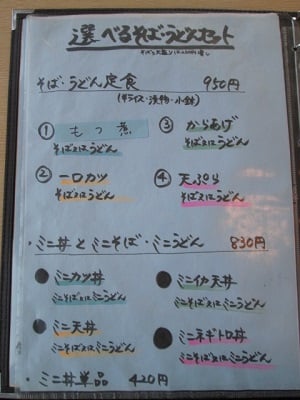 選べるそば・うどんセット
そば・うどん定食 950円
(半ライス・漬物・小鉢)
① もつ煮
そば又はうどん
② 一口カツ
そば又はうどん
③ からあげ
そば又はうどん
④ 天ぷら
そば又はうどん
・ミニ丼とミニそば・ミニうどん 830円
● ミニカツ丼
ミニそば又はミニうどん
● ミニ天丼
ミニそば又はミニうどん
● ミニイカ天丼
ミニそば又はミニうどん
● ミニネギトロ丼
ミニそば又はミニうどん
・ミニ丼単品 420円